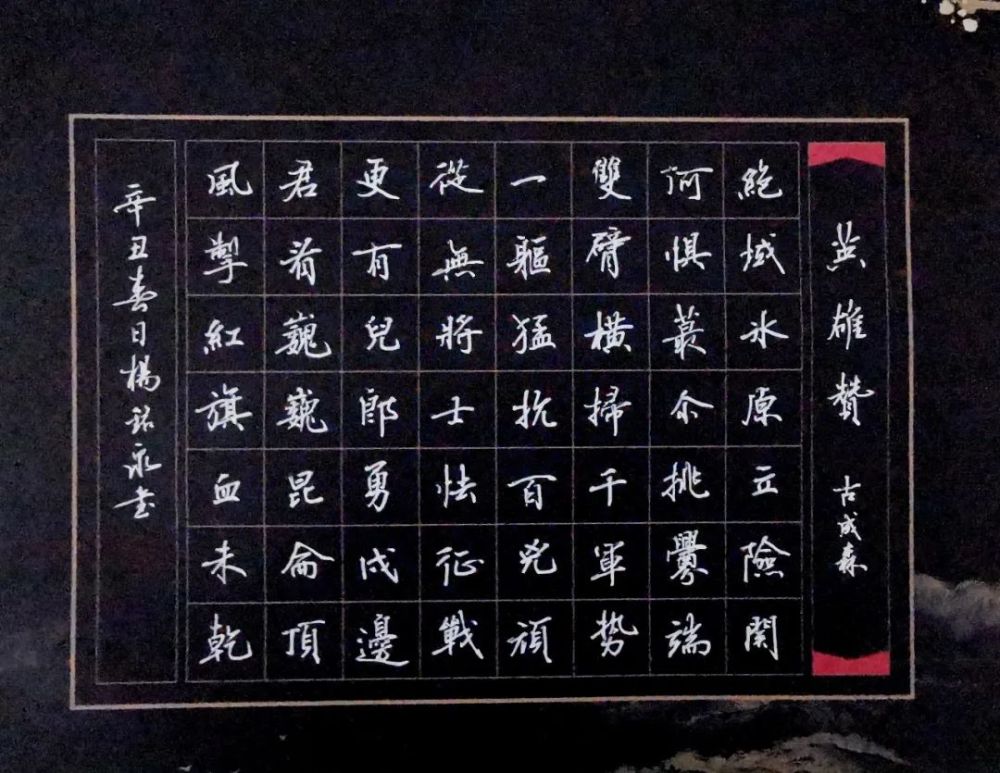 英雄贊 古成森
絶域冰原立險関
何懼蕞尒挑釁端
雙臂横掃千軍势
一軀猛抗百兇頑
從無將士怯征戰
更有兒郎勇戍邊
君看巍巍昆侖頂
風掣紅旗血未乾
辛丑春日楊銘永书